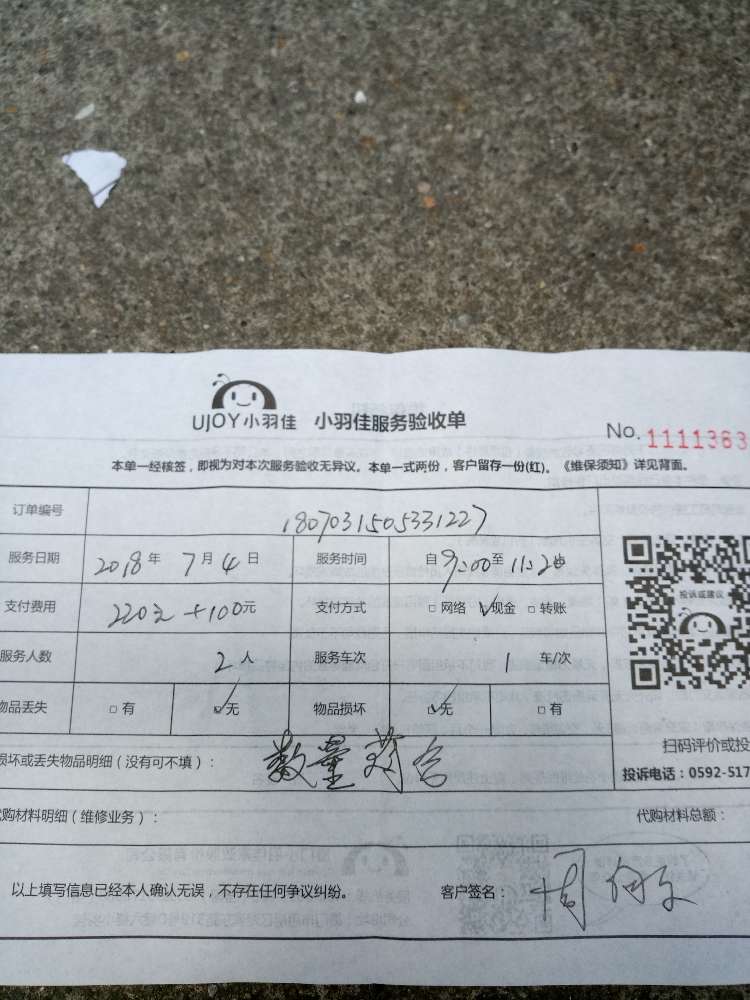 UJOY小羽佳 小羽佳服务验收单
No. 1111363
本单一经核签，即视为对本次服务验收无异议。本单一式两份，客户留存一份(红)。《维保须知》详见背面。
订单编号 1807031505331227
服务日期 2018年 7月4日 服务时间 自9:00至11:20
支付费用 220元+100元 支付方式 □网络 ✓现金 □转账
服务人数 2人 服务车次 1 车/次
物品丢失 □有 ☑无 物品损坏 ☑无 □有
投诉或建议
损坏或丢失物品明细（没有可不填）： 数量符合
扫码评价或投
投诉电话：0592-517
代购材料明细（维修业务）： 代购材料总额：
以上填写信息已经本人确认无误，不存在任何争议纠纷。 客户签名：